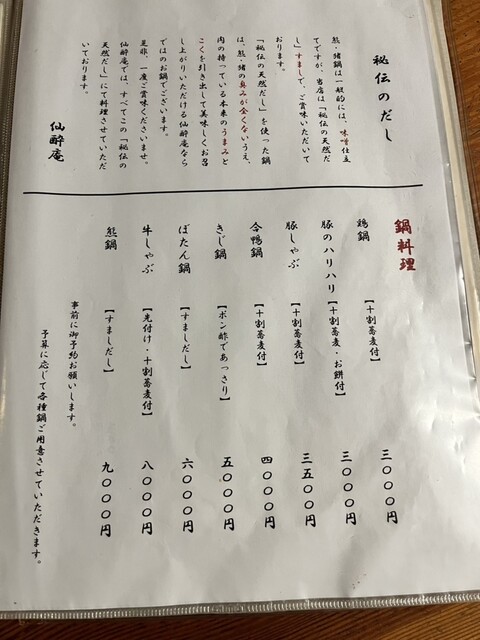 秘伝のだし
熊・猪鍋は一般的には、味噌仕立
てですが、当店は「秘伝の天然だ
し」すましで、ご賞味いただいて
おります。
「秘伝の天然だし」を使った鍋
は、熊・猪の臭みが全くないうえ、
肉の持っている本来のうまみと
こくを引き出して美味しくお召
し上がりいただける仙酔庵なら
ではのお鍋でございます。
是非、一度ご賞味くださいませ。
仙酔庵では、すべてこの「秘伝の
天然だし」にて料理させていただ
いております。
仙酔庵
鍋料理
鶏鍋 【十割蕎麦付】 三〇〇〇円
豚のハリハリ 【十割蕎麦・お餅付】 三〇〇〇円
豚しゃぶ 【十割蕎麦付】 三五〇〇円
合鴨鍋 【十割蕎麦付】 四〇〇〇円
きじ鍋 【ポン酢であっさり】 五〇〇〇円
ぼたん鍋 【すましだし】 六〇〇〇円
牛しゃぶ 【先付け・十割蕎麦付】 八〇〇〇円
熊鍋 【すましだし】 九〇〇〇円
事前に御予約お願いします。
予算に応じて各種鍋ご用意させていただきます。